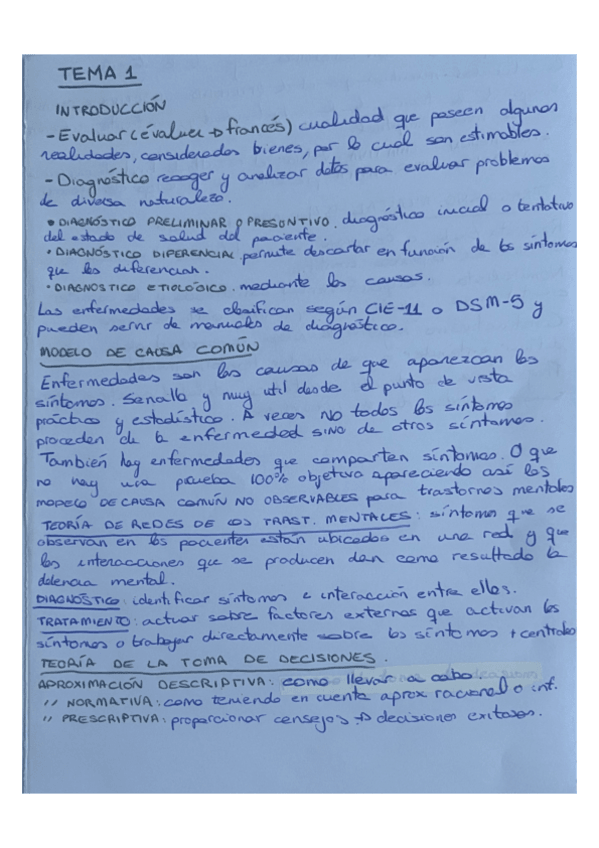 TEMA 1
INTRODUCCIÓN
- Evaluar (évaluer → francés) cualidad que poseen algunas
realidades, consideradas bienes, por lo cual son estimables.
- Diagnóstico recoger y analizar datos para evaluar problemas
de diversa naturaleza.
• DIAGNÓSTICO PRELIMINAR O PRESUNTIVO. diagnóstico inicial o tentativo
del estado de salud del paciente.
• DIAGNÓSTICO DIFERENCIAL permite descartar en función de los síntomas
que los diferencian.
• DIAGNOSTICO ETIOLÓGICO. mediante las causas.
Las enfermedades se clasifican según CIE-11 o DSM-5 y
pueden servir de manuales de diagnóstico.
MODELO DE CAUSA COMÚN
Enfermedades son las causas de que aparezcan los
síntomas. Senallo y muy util desde el punto de vista
práctico y estadístico. A veces NO todos los síntomas
proceden de la enfermedad sino de otros síntomas.
También hay enfermedades que comparten síntomas. O que
no hay una prueba 100% objetiva apareciendo así los
MODELO DE CAUSA COMÚN NO OBSERVABLES para trastornos mentales
TEORÍA DE REDES DE LOS TRAST. MENTALES: síntomas que se
observan en los pacientes están ubicados en una red y que
las interacciones que se producen dan como resultado la
dolencia mental.
DIAGNÓSTICO: identificar síntomas e interacción entre ellos.
TRATAMIENTO: actuar sobre factores externos que activan los
síntomas o trabajar directamente sobre los síntomas + centrales
TEORÍA DE LA TOMA DE DECISIONES.
APROXIMACIÓN DESCRIPTIVA: como llevar a cabo
,, NORMATIVA: como teniendo en cuenta aprox racional o inf.
,, PRESCRIPTIVA: proporcionar consejos → decisiones exitosas.